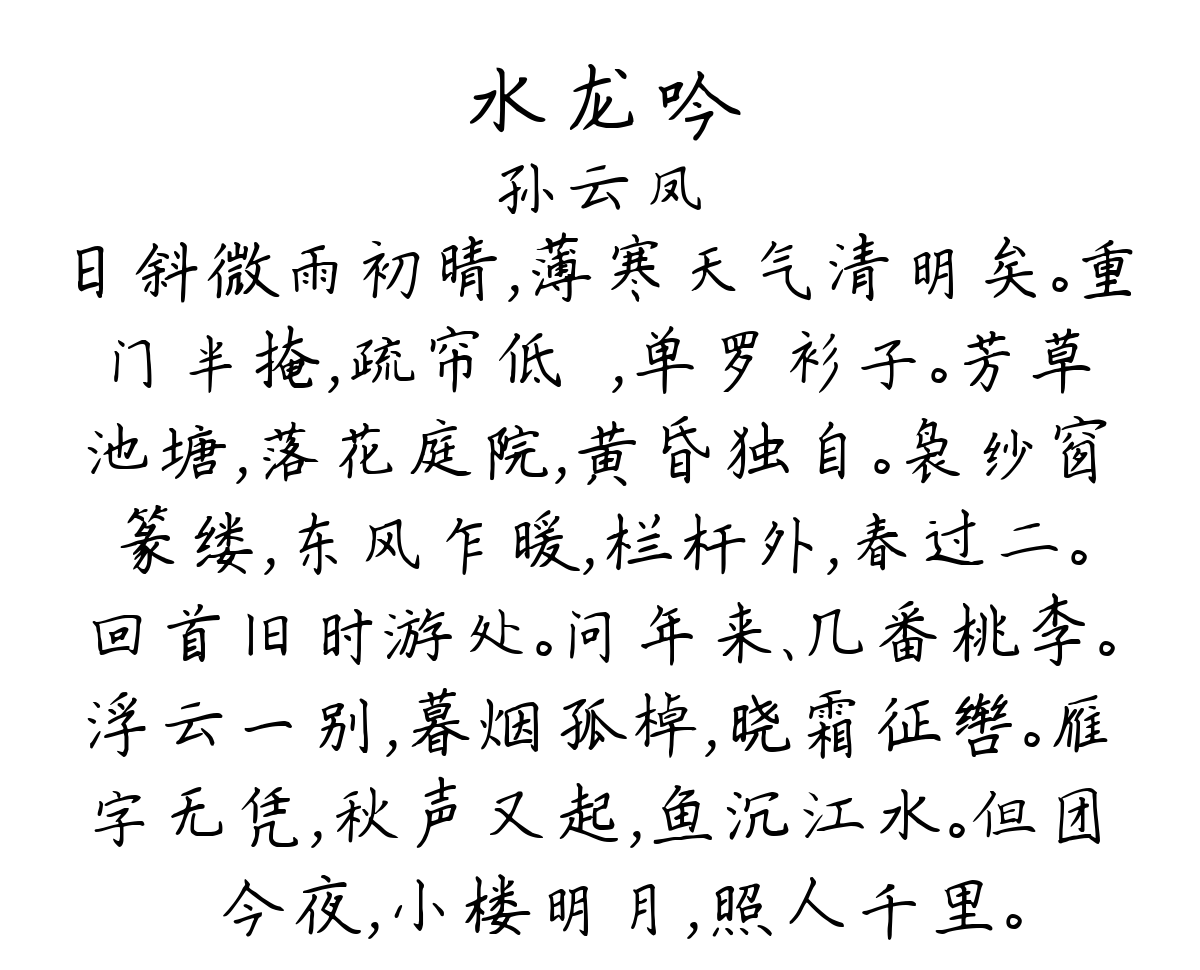 水龙吟
孙云凤
日斜微雨初晴,薄寒天气清明矣。重
门半掩,疏帘低 ,单罗衫子。芳草
池塘,落花庭院,黄昏独自。袅纱窗
篆缕,东风乍暖,栏杆外,春过二。
回首旧时游处。问年来、几番桃李。
浮云一别,暮烟孤棹,晓霜征辔。雁
字无凭,秋声又起,鱼沉江水。但团
今夜,小楼明月,照人千里。